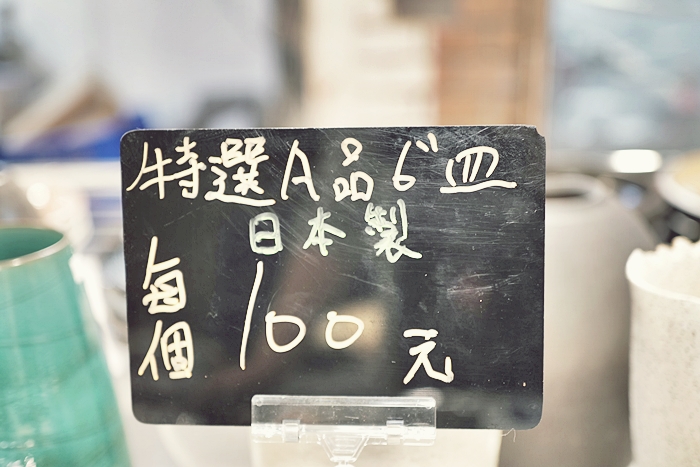 特選A品6"皿
日本製
每個 100元